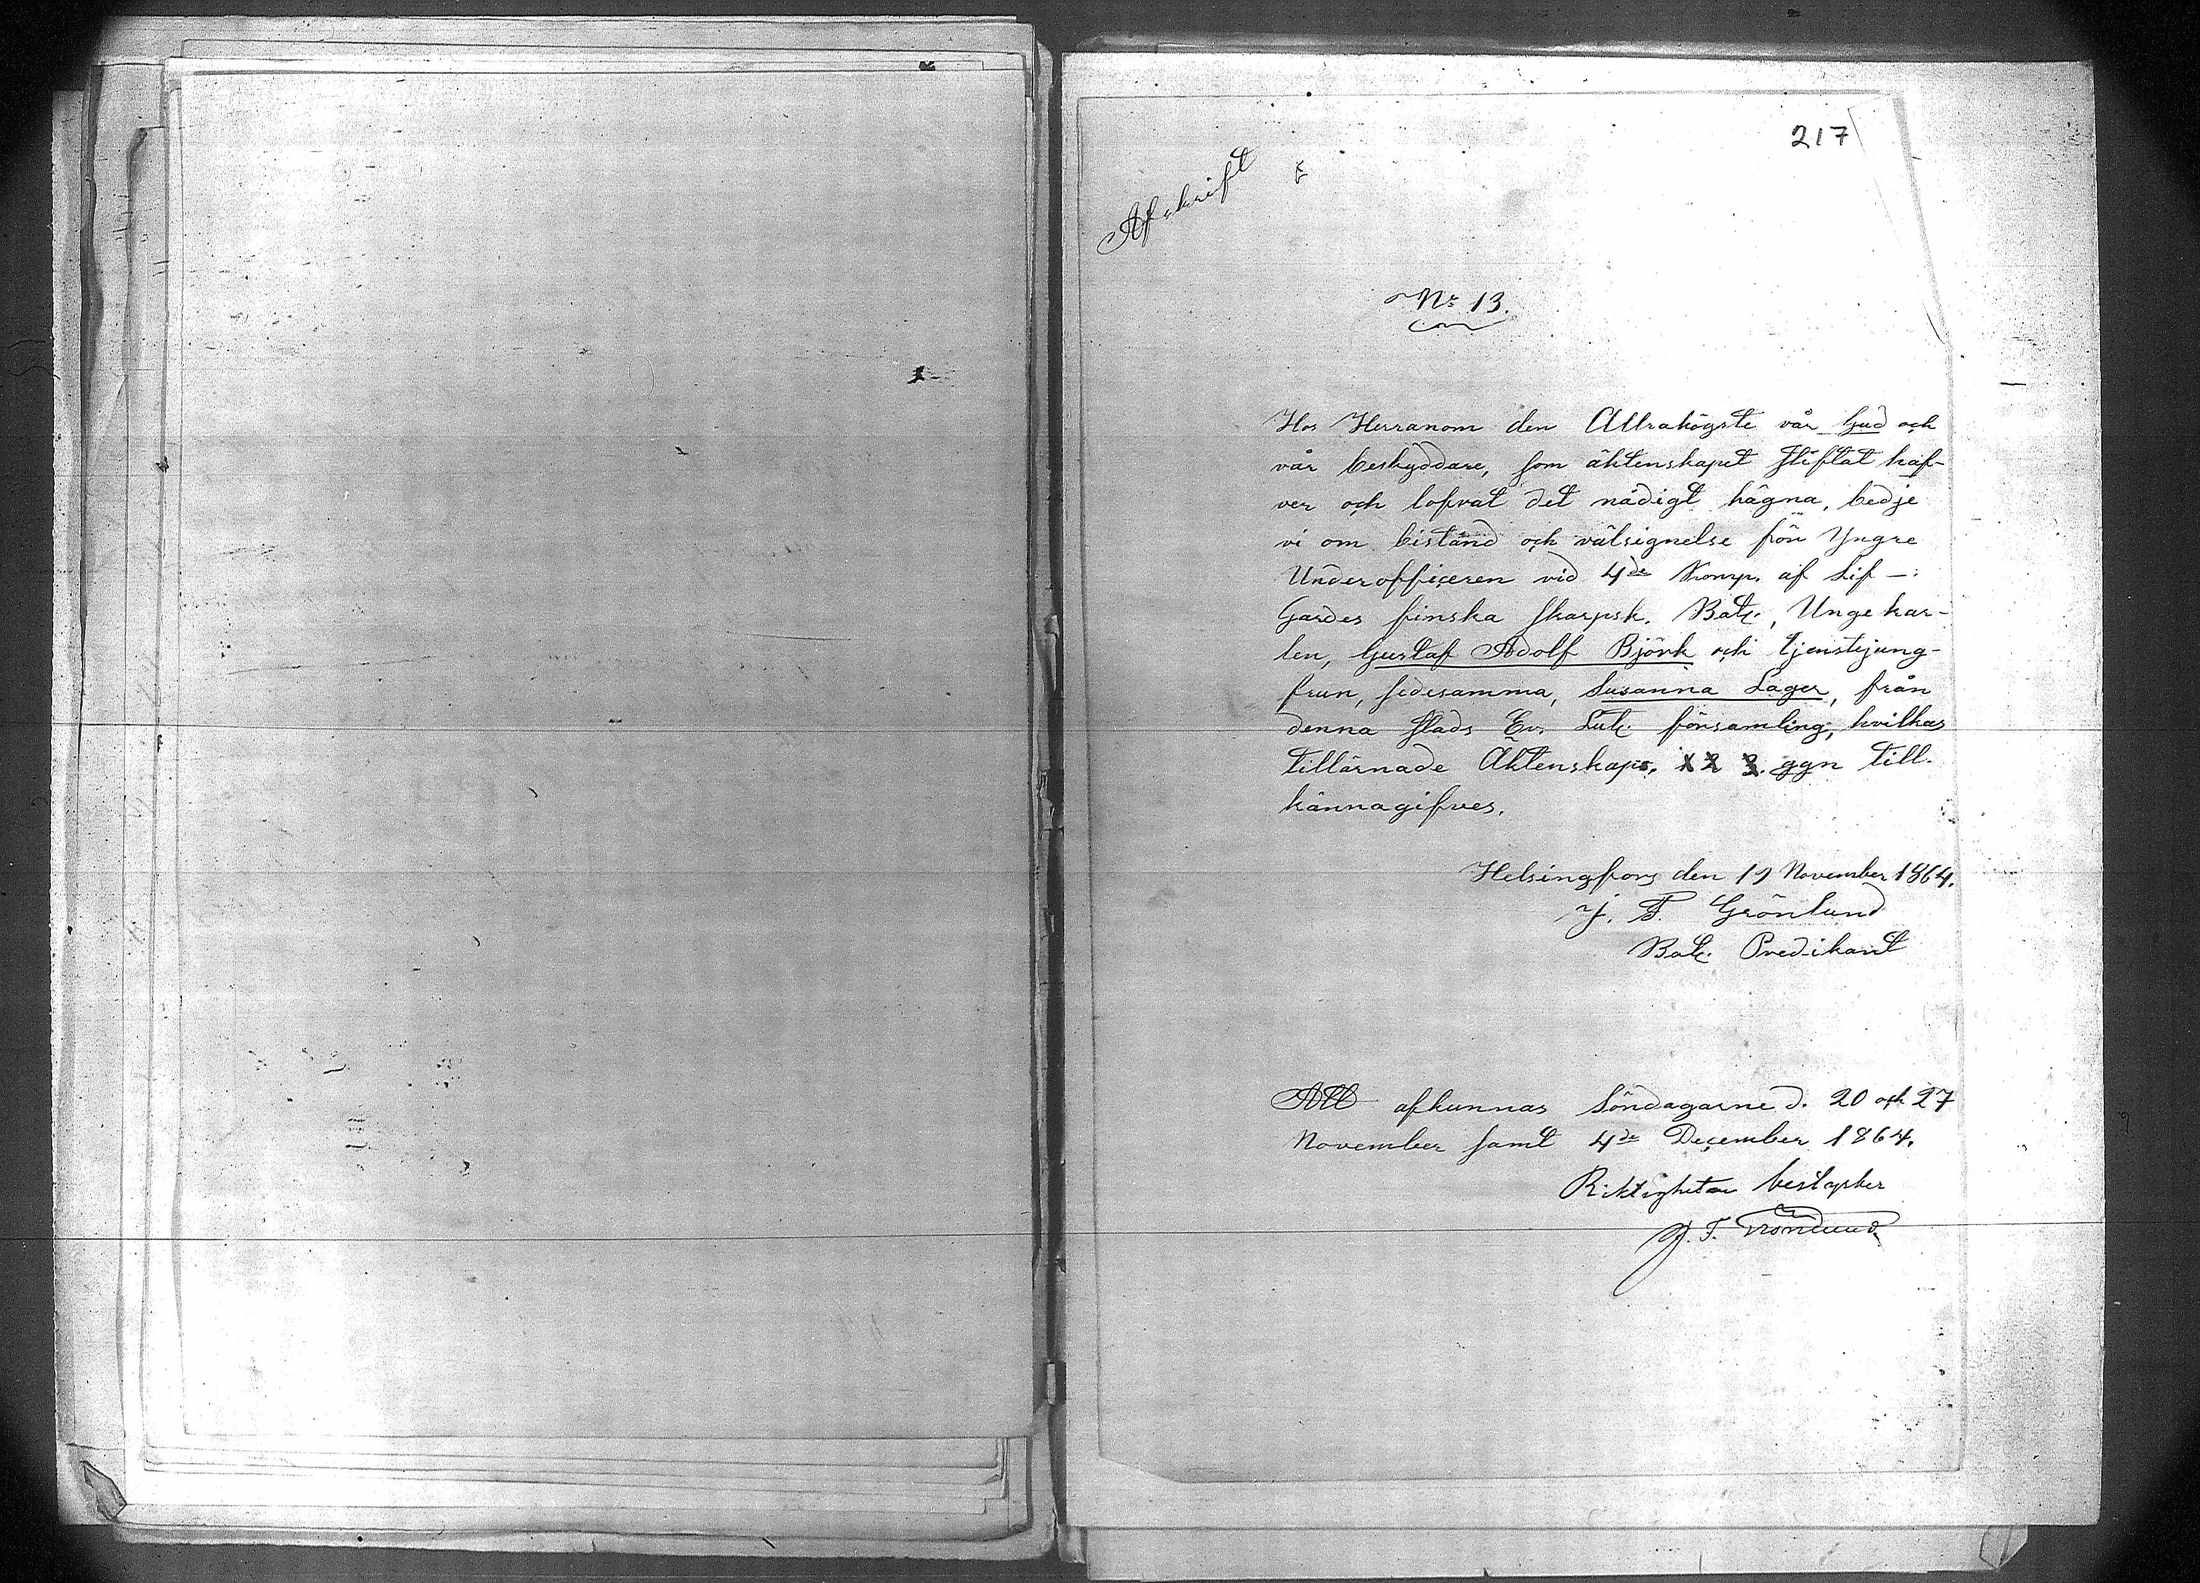 217
Afskrift
Nr 13.
Hos Herranom den Allrahögste vår Gud och
vår beskyddare, som äktenskapet stiftat haf-
ver och lofvat det nådigt hägna, bedje
vi om bistånd och välsignelse för Yngre
Underofficeren vid 4de Komp. af Lif-
Gardes finska skarpsk. Bat:, Ungekar-
len, Gustaf Adolf Björk och tjenstejung-
frun, sedesamma, Susanna Lager, från
denna stads Ev. Luth. församling, hvilkas
tillärnade Äktenskap, 1 2 3. ggn till-
kännagifves.
Helsingfors den 19 November 1864.
J. F. Grönlund
Bat: Predikant
Att afkunnas Söndagarne d. 20 och 27
November samt 4de December 1864.
Riktigheten bestyrker
J. F. Grönlund